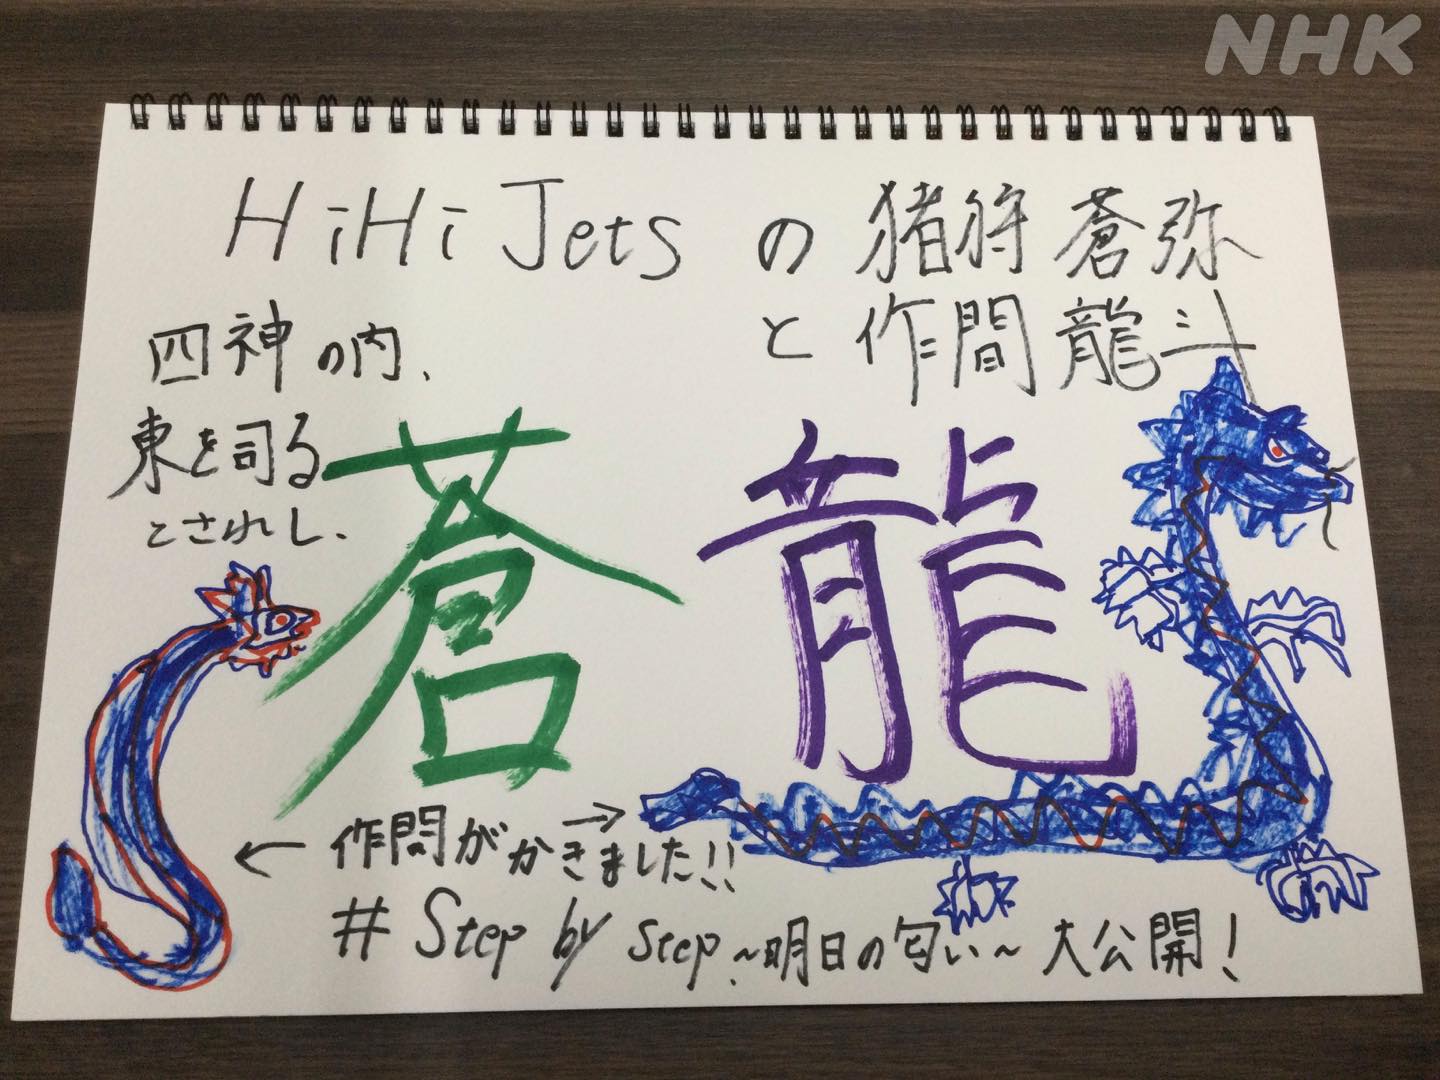 NHK
HiHi Jets の 猪狩 蒼弥
と 作間 龍斗
四神の内、
東を司る
とされし、
蒼 龍
← 作間がかきました!! →
# Step by step ~明日の匂い~ 大公開!